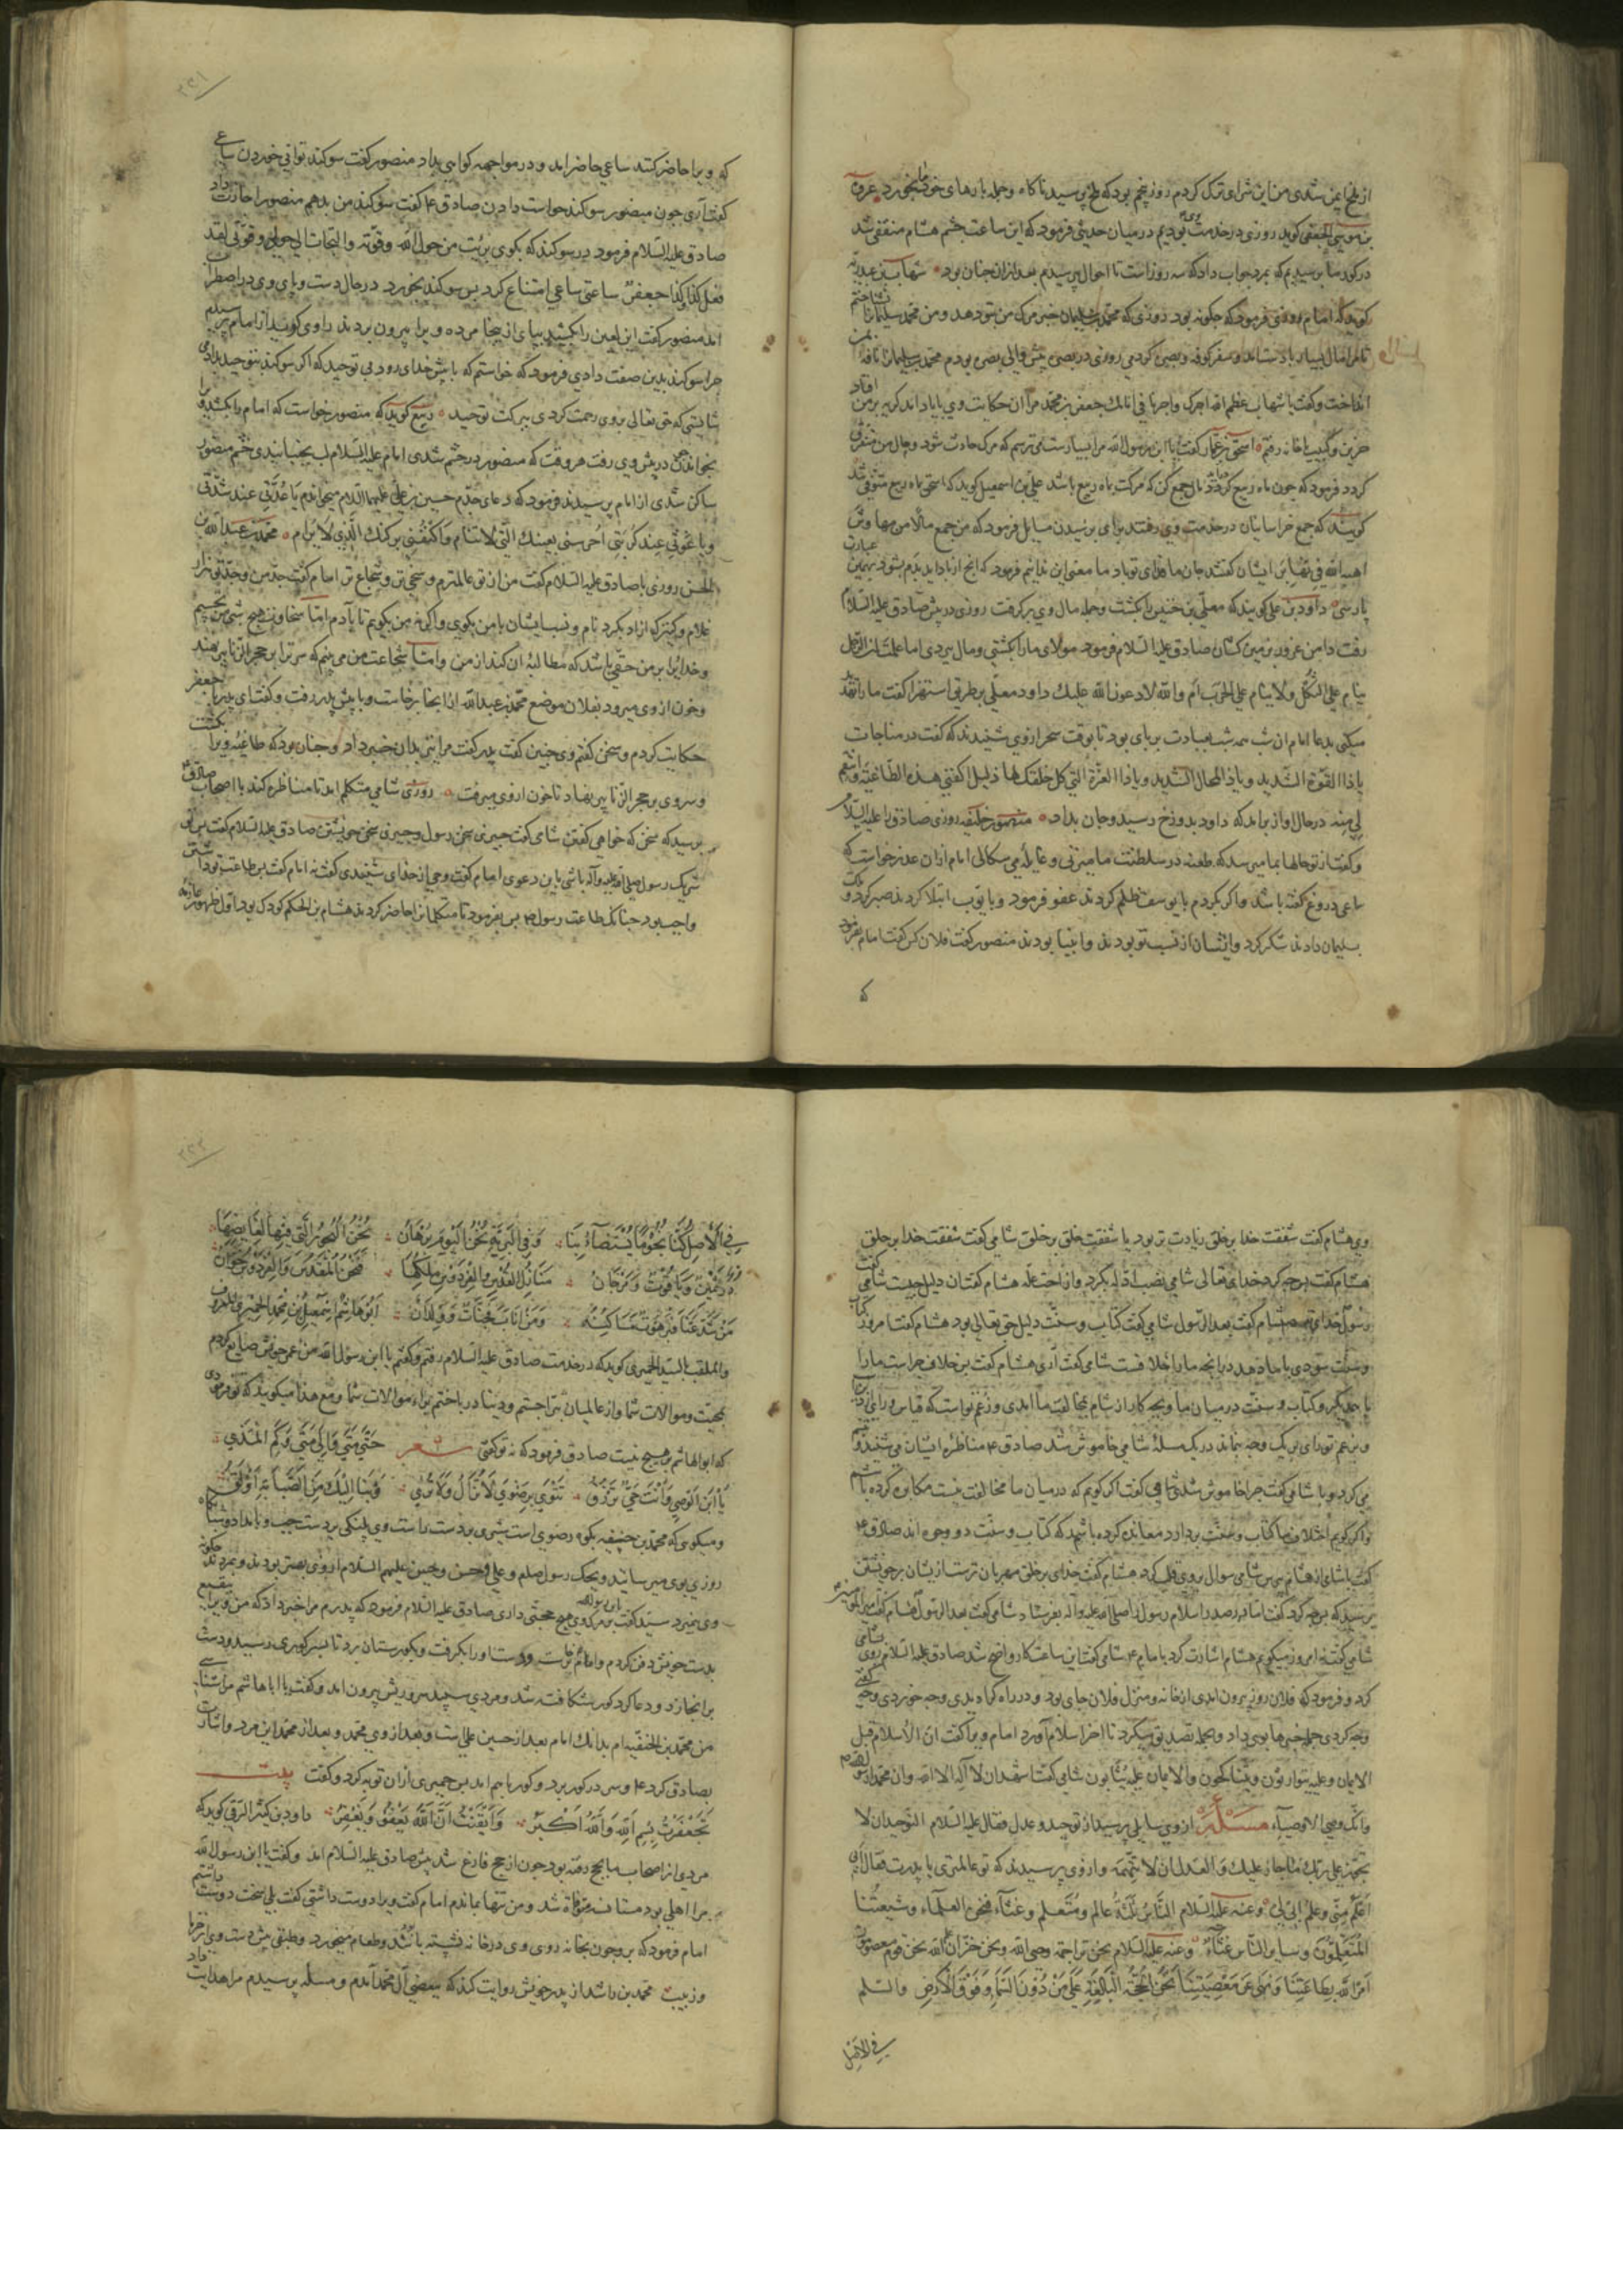 از ملخ ایمن شدی من این شرای ترک کردم روز پنجم بود که ملخ برسید ناکاه و جمله بارهای خود بخورد عروة
بن موسی الجعفی کوید روزی در خدمت وی بودیم در میان حدیثی فرمود که این ساعت چشم هشام منفقی شد
در کور ما پرسیدیم که بمرد جواب داد که سه روز است تا احوال پرسیدیم بعد از ان چنان بود شهاب بن عبد ربه
کوید که امام روزی فرمود که چکونه بود روزی که محمد بن سلیمان خبر مرک من بتو دهد و من محمد سلیمانرا نشناختم
تا مرا مال بسیار باد ستاند و سفر کوفه و بصره کردمی روزی در بصره پیش والی بصره بودم محمد بن سلیمان نامه بمن
انداخت و گفت یا شهاب عظم الله اجرک واجرنا فی امامک جعفر بن محمد مرا ان حکایت وی با یاد امد کریه بر من افتاد
حزین و کییب با خانه رفتم اسحق بن عمار کفت یا ابن رسول الله مرا بسیارست می ترسم که مرک حادث شود و مال من متفرق
کردد فرمود که چون ماه ربیع کردد مال جمع کن که مرکت بماه ربیع باشد علی بن اسمعیل کوید که اسحق بماه ربیع متوفی شد
کویند که جمع خراسانیان در خدمت وی رفتند برای پرسیدن مسایل فرمود که من جمع مالا من مهاوش
اهبه الله فی نهابر ایشان کفتند جان ما فدای تو باد ما معنی این ندانیم فرمود که انچ از باد اید بدم بشود بهمین عبارت
پارسی داود بن علی کویند که معلی بن خنیس را بکشت و جمله مال وی برکرفت روزی در پیش صادق علیه السلام
رفت دامن غرور بزمین کشان صادق علیه السلام فرمود مولای ما را بکشتی و مال ببردی اما علمت ان الرجل
ینام علی الثکل ولا ینام علی الحرب ام والله لادعون الله علیک داود معلی بر طریق استهزا کفت ما را تهدید
میکنی بدعا امام ان شب همه شب بعبادت بر پای بود تا بوقت سحر از وی شنیدند که کفت در مناجات
یا ذا القوة الشدید و یا ذا المحال الشدید و یا ذا العزة التی کل خلقک لها ذلیل اکفنی هذه الطاغیة وانتقم
لی منه در حال اواز برامد که داود بدوزخ رسید و جان بداد منصور خلیفه روزی صادق را علیه السلام
و کفت از تو حالها بما میرسد که طعنه در سلطنت ما میزنی و غایله می سکالی امام ازان عذر خواست که
ساعی دروغ کفته باشد و اکر بکردم با یوسف ظلم کردند عفو فرمود و با ایوب ابتلا کردند صبر کرد و ملک
بسلیمان دادند شکر کرد و ایشان از نسب تو بودند و انبیا بودند منصور کفت فلان کس کفت امام بفرمود
که
که ویرا حاضر کنند ساعی حاضر امد و در مواجهه کواهی بداد منصور کفت سوکند توانی خوردن ساعی
کفت آری چون منصور سوکند خواست دادن صادق ع کفت سوکند من بدهم منصور اجازت داد
صادق علیه السلام فرمود در سوکند که بکوی بریت من حول الله وقوته والتجات الی حولی وقوتی لقد
فعل کذا وکذا جعفر ساعتی ساعی امتناع کرد پس سوکند بخورد در حال دست و پای وی در اضطراب
امد منصور کفت این لعین را بکشید بپای از ینجا مرده ویرا بیرون بردند راوی کوید از امام پرسیدیم
چرا سوکند بدین صفت دادی فرمود که خواستم که با پیش خدای رود بی توحید که اکر سوکند بتوحید دادمی
شایستی که حق تعالی بر وی رحمت کردی ببرکت توحید ربیع کوید که منصور خواست که امام را بکشد ویرا
بخواند چون در پیش وی رفت هر وقت که منصور در خشم شدی امام علیه السلام لب بجنبانیدی خشم منصور
ساکن شدی از امام پرسیدند فرمود که دعای جدم حسین بن علی علیهما السلام میخواندم یا عدتی عند شدتی
ویا غوثی عند کربتی احرسنی بعینک التی لا تنام واکنفنی برکنک الذی لا یرام محمد بن عبد الله بن
الحسن روزی با صادق علیه السلام کفت من از تو عالمترم و سخی تر و شجاع تر امام کفت جد من و جد تو هزار
غلام و کنیزک ازاد بکرد نام و نسب ایشان با من بکوی و اکر نه من بکویم تا بآدم اما سخاوت هیچ شبی نخسبم
وخدایرا بر من حقی باشد که مطالبهٔ ان کند از من و اما شجاعت من می بینم که سر ترا بر حجر الزنابیر نهند
وخون از وی میرود بفلان موضع محمد بن عبد الله از اینجا برخاست و با پیش پدر رفت و کفت ای پدر با جعفر
حکایت کردم و سخن کفتم وی چنین کفت پدر کفت مرا نیز بدان خبر داد و چنان بود که طاغیه ویرا بکشت
و سر وی بر حجر الزنابیر نهاد تا خون از وی میرفت روزی شامی متکلم امد تا مناظره کند با اصحاب صادق ع
پرسید که سخن که خواهی کفتن شامی کفت چیزی سخن رسول و چیزی سخن خویشتن صادق علیه السلام کفت پس تو
شریک رسول صلی الله علیه وآله باشی باین دعوی امام کفت وحی از خدای شنیدی کفت نه امام کفت پس طاعت تو داشتن
واجب بود چنانک طاعت رسول ص پس بفرمود تا متکلمانرا حاضر کردند هشام بن الحکم کودک بود اول ظهور
وی هشام کفت شفقت خدا بر خلق زیادت تر بود یا شفقت خلق بر خلق شامی کفت شفقت خدا بر خلق
هشام کفت پس چه کرد خدای تعالی شامی نصب ادله بکرد وازاحت عله هشام کفت ان دلیل چیست شامی کفت
رسول خدای هشام کفت بعد الرسول شامی کفت کتاب و سنت دلیل حق تعالی بود هشام کفت امروز کتاب
وسنت سودی با ما دهد در انچه ما را خلافست شامی کفت آری هشام کفت پس خلاف چراست ما را
با یکدیگر و کتاب و سنت در میان ما و بچه کار از شام بمخالفت ما امدی وزعم تو است که قیاس و رای
می کرد و با شامی کفت چرا خاموش شدی شامی کفت اکر کویم که درمیان ما مخالفت نیست مکابره کرده باشم
و اکر کویم اختلاف ما کتاب و سنت بردارد معانده کرده باشم که کتاب و سنت دو وجهی اند صادق ع
شامی کفت نه امروز میکویم هشام اشارت کرد بامام ع شامی کفت این ساعت کار واضح شد صادق علیه السلام روی بشامی
کرد و فرمود که فلان روز بیرون امدی از خانه ومنزل فلان جای بود و در راه کرا دیدی وچه خوردی وچه کفتی
وچه کردی جمله خبرها بوی داد و بجمله تصدیق میکرد تا اخر اسلام آورد امام ویرا کفت ان الاسلام قبل
الایمان وعلیه یتوارثون ویتناکحون والایمان علیه یثابون شامی کفت اشهد ان لا اله الا الله وان محمدا رسول الله
وانک وصی الاوصیاء مسئله از وی سایلی پرسید از توحید و عدل فقال علیه السلام التوحید ان لا
تجوز علی ربک ما جاز علیک والعدل ان لا تتهمه واز وی پرسیدند که تو عالمتری یا پدرت فقال ابی
اعلم منی وعلم ابی لی وعنه علیه السلام الناس ثلثة عالم ومتعلم وغثاء فنحن العلماء وشیعتنا
المتعلمون وسایر الناس غثاء وعنه علیه السلام نحن تراجمة وحی الله ونحن خزان علم الله نحن قوم معصومون
امر الله بطاعتنا ونهی عن معصیتنا نحن الحجة البالغة علی من دون السماء وفوق الارض والسلم
فی الاصل
فی الاصل کنا نجوما یستضاء بنا وفی البریة نحن الیوم برهان نحن البحور التی فیها لغایصها
در ثمین ویاقوت ومرجان منازل القدس والفردوس نملکها فنحن للقدس والفردوس خزان
من شذ عنا فبرهوت مساکنه ومن اتانا فجنات وولدان ابو هاشم اسمعیل بن محمد الحمیری المعروف
والملقب السید الحمیری کوید که در خدمت صادق علیه السلام رفتم و کفتم یا ابن رسول الله من عمر خویش ضایع کردم
بمحبت و موالات شما و از عالمیان تبرا جستم و دنیا در باختم برای موالات شما و مع هذا میکویند که تو مردی
که ابو الهاشم بر هیچ نیست صادق فرمود که نه تو کفتی شعر حتی متی والی متی وکم المدی
یا ابن الوصی وانت حی ترزق تثوی برضوی لا تزال ولا تری وبنا الیک من الصبابة اولق
ومیکوی که محمد بن حنیفه بکوه رضوی است شیری بر دست راست وی پلنکی بر دست چپ و بامداد و شبانکاه
روزی بوی میرسانند ویحک رسول صلعم و علی و حسن و حسین علیهم السلام از وی بهتر بودند و بمردند چکونه
وی نمیرد سید کفت برین مرک وی هیچ حجتی داری صادق علیه السلام فرمود که پدرم مرا خبر داد که من ویرا ببقیع
بدست خویش دفن کردم
بر انجا زد و دعا کرد کور شکافته شد و مردی سپید سر و ریش بیرون امد و کفت یا ابا هاشم مرا شناسی
من محمد بن الحنفیه ام بدانک امام بعد از حسین علی است و بعد از وی محمد و بعد از محمد این مرد و اشارت
بصادق کرد ع و سر در کور برد و کور باهم امد پس حمیری ازان توبه کرد و کفت بیت
تجعفرت بسم الله والله اکبر وایقنت ان الله یعفو ویغفر داود بن کثیر الرقی کوید که
مردی از اصحاب ما بحج رفته بود چون از حج فارغ شد پیش صادق علیه السلام امد و کفت یا ابن رسول الله
مرا اهلی بود متوفاة شد و من تنها بماندم امام کفت ویرا دوست داشتی کفت بلی سخت دوست داشتم
امام فرمود که برو چون بخانه روی وی در خانه نشسته باشد و طعام میخورد و طبقی پیش دست وی خرما
و زبیب محمد بن راشد از پدر خویش روایت کند که ببعضی آل محمد آمدم و مسئله پرسیدم مرا هدایت داد